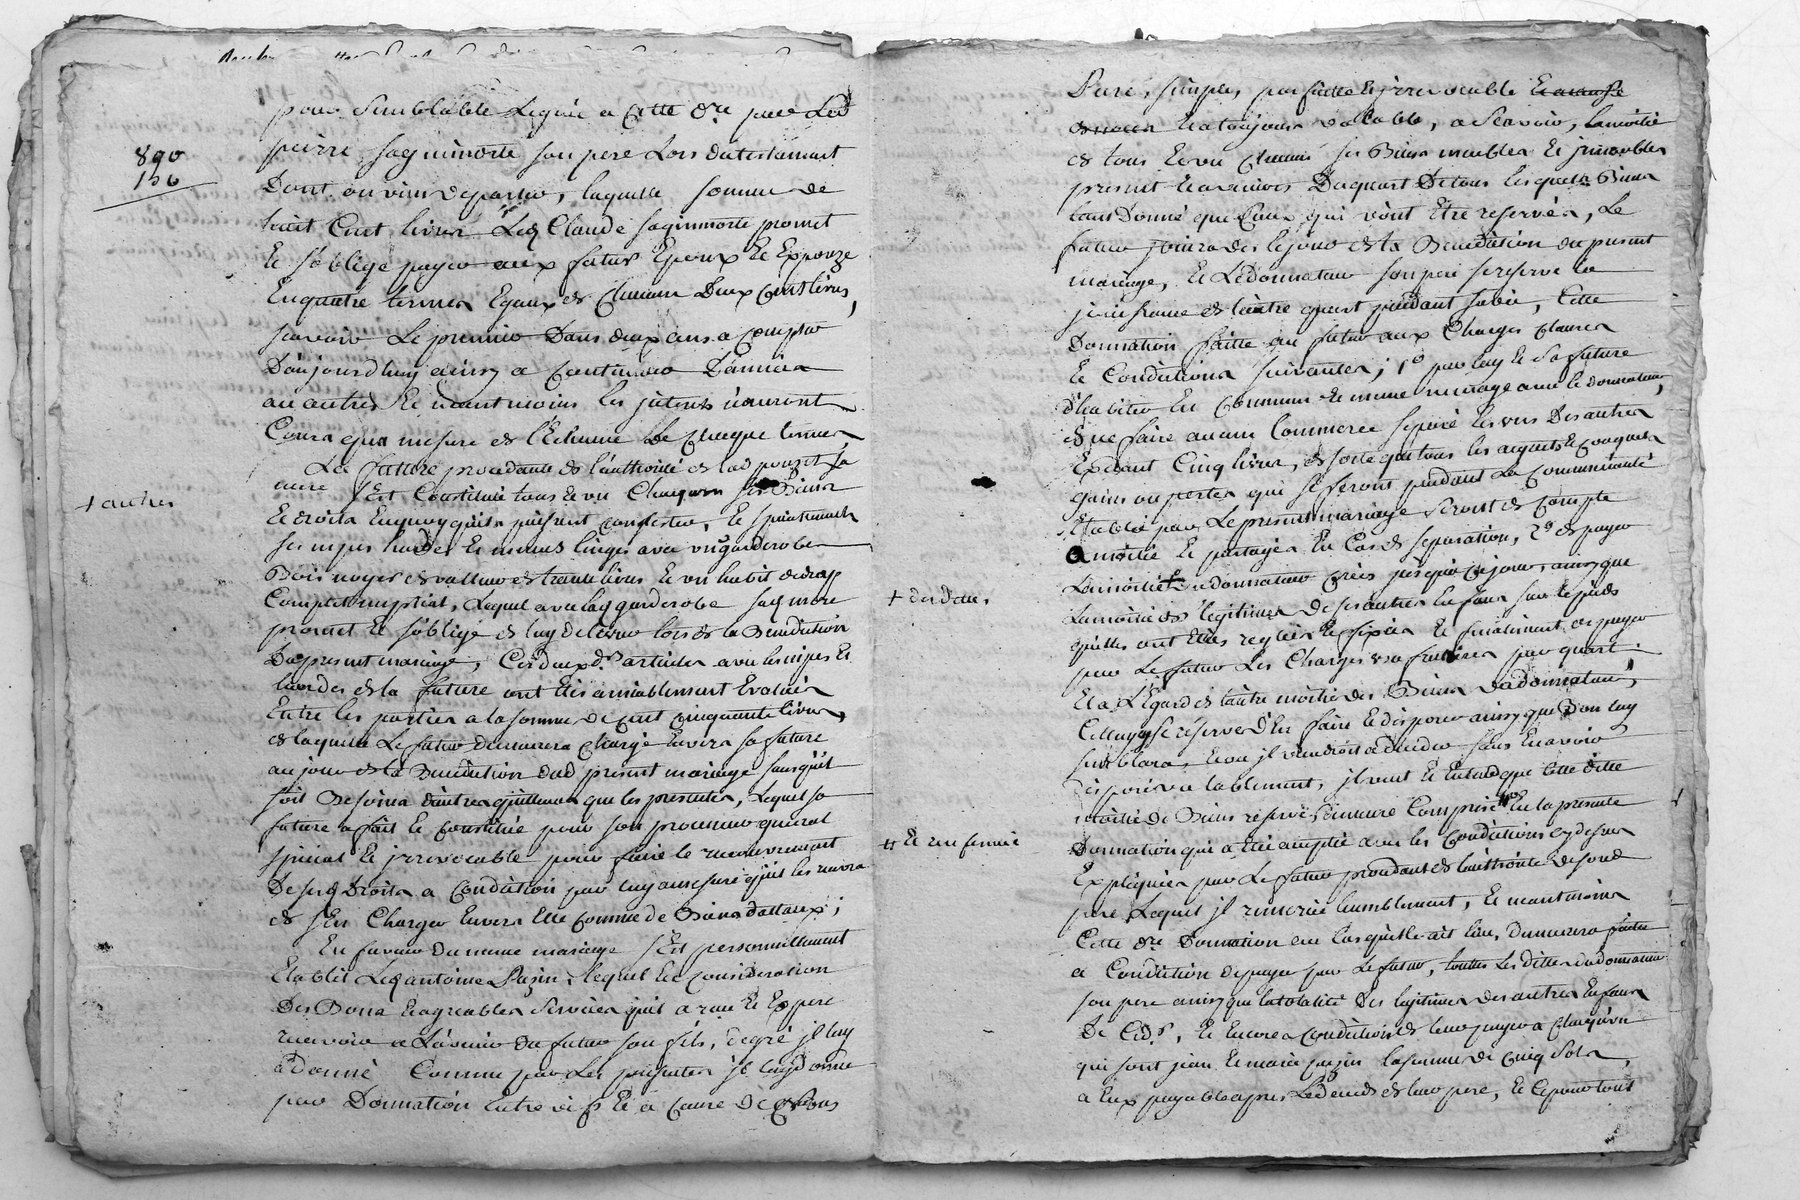 pour semblable leguée a cette dte par led
pierre sagnimorte son pere lors du testament
dont on vient de parler, laquelle somme de
800
150
huit cent livres led Claude sagnimorte promet
et s'oblige payer aux futurs Epoux et Expouze
en quatre termes Egaux de chacun deux cent livres,
scavoir le premier dans deux ans a compter
d'aujourdhuy ainsy a continuer d'années
au autres et neantmoins les jnterets n'auront
cours qua mesure de l'Echeance de chaque terme
La future procedante de l'authorité de lad
mere s'Est Constituée tous Et un chaquns ses Biens
+ autres
Et droits en quoy qu'ils puissent consister, Et specialement
ses nipes hardes Et menus linges avec un garderobe
Bois noyer de valleur de trente livres Et un habit de drap
complet nuptial, lequel avec lad garderobe sad mere
promet Et s'oblige de luy delivrer lors de la Benediction
du present mariage, Ces deux ds articles avec les nipes Et
hardes de la future ont Etés amiablement Evalués
Entre les parties a la somme de cent cinquante livres,
de laquelle le futur demeurera chargé Envers sa future
au jour de la Benediction dud present mariage sans qu'il
soit Besoins d'autres quittances que les presentes, lequel sa
future a fait Et constitué pour son procureur general
special Et jrrevocable pour faire le recouvrement
de sesd droits a condition par luy a mesure qu'il les recevra
de s'En charger Envers Elle comme de Biens dottaux ;
En faveur du meme mariage s'Est personnellement
Etablit led antoine Pazin, lequel En consideration
des Bons Et agreables services qu'il a reçu Et Espere
recevoir a l'avenir du futur son fils, de gré jl luy
a donné comme par les presentes jl luy donne
par donnation Entre vifs Et a cause de
Pure, simple, parfaitte Et jrrevocable
Et a toujours vallable, a scavoir, la moitié
de tous Et un chacuns ses Biens meubles Et jmmeubles
present Et avenirs du quart de tous lesquels Biens
tant donné que ceux qui vont Etre reservés, le
futur jouira des le jour de la Benediction du present
mariage, Et le donnateur son pere se reserve la
jouissance de l'autre quart pendant sa vie, Cette
donnation faitte au futur aux charges clauses
Et Conditions suivantes ; 1o par luy Et sa future
d'habiter En commun Et meme menage avec le donnateur,
de ne faire aucun commerce separé les uns des autres
Excedant cinq livres, de sorte que tous les acquets Et conquets
gains ou pertes qui se feront pendant la communauté
Etablie par le present mariage seront de compte
a moitié Et partagés En Cas de separation, 2o de payer
la moitié + du donnateur crées jusqu'a ce jour, ainsy que
+ des dettes
la moitié des legitimes de ses autres Enfans sur le pied
qu'elles ont Etées reglées Et fixées Et finalement de payer
par le futur les charges usufruitieres par quart.
Et a l'Egard de l'autre moitié des Biens du donnateur,
celluy cy se reserve d'En faire Et disposer ainsy que Bon luy
semblera, Et ou jl viendroit a deceder sans En avoir
disposé vallablement, jl veut Et Entend que cette ditte
moitié de Biens reservée demeure comprise ++ En la presente
++ Et renfermée
donnation qui a Eté acceptée avec les conditions cy dessus
Expliquées par le futur procedant de l'authorité de sond
pere lequel jl remercie humblement, Et neantmoins
Cette de donnation au Cas qu'Elle ait lieu, demeurera faitte
a Condition de payer par le futur, toutes les dittes du donnateur
son pere ainsy que la totalité des legitimes des autres Enfans
de Cd, Et Encore a condition de leur payer a chaqu'un
qui sont jean Et marie pazin la somme de cinq sols,
a Eux payable apres le deceds de leur pere, Et ce pour tout